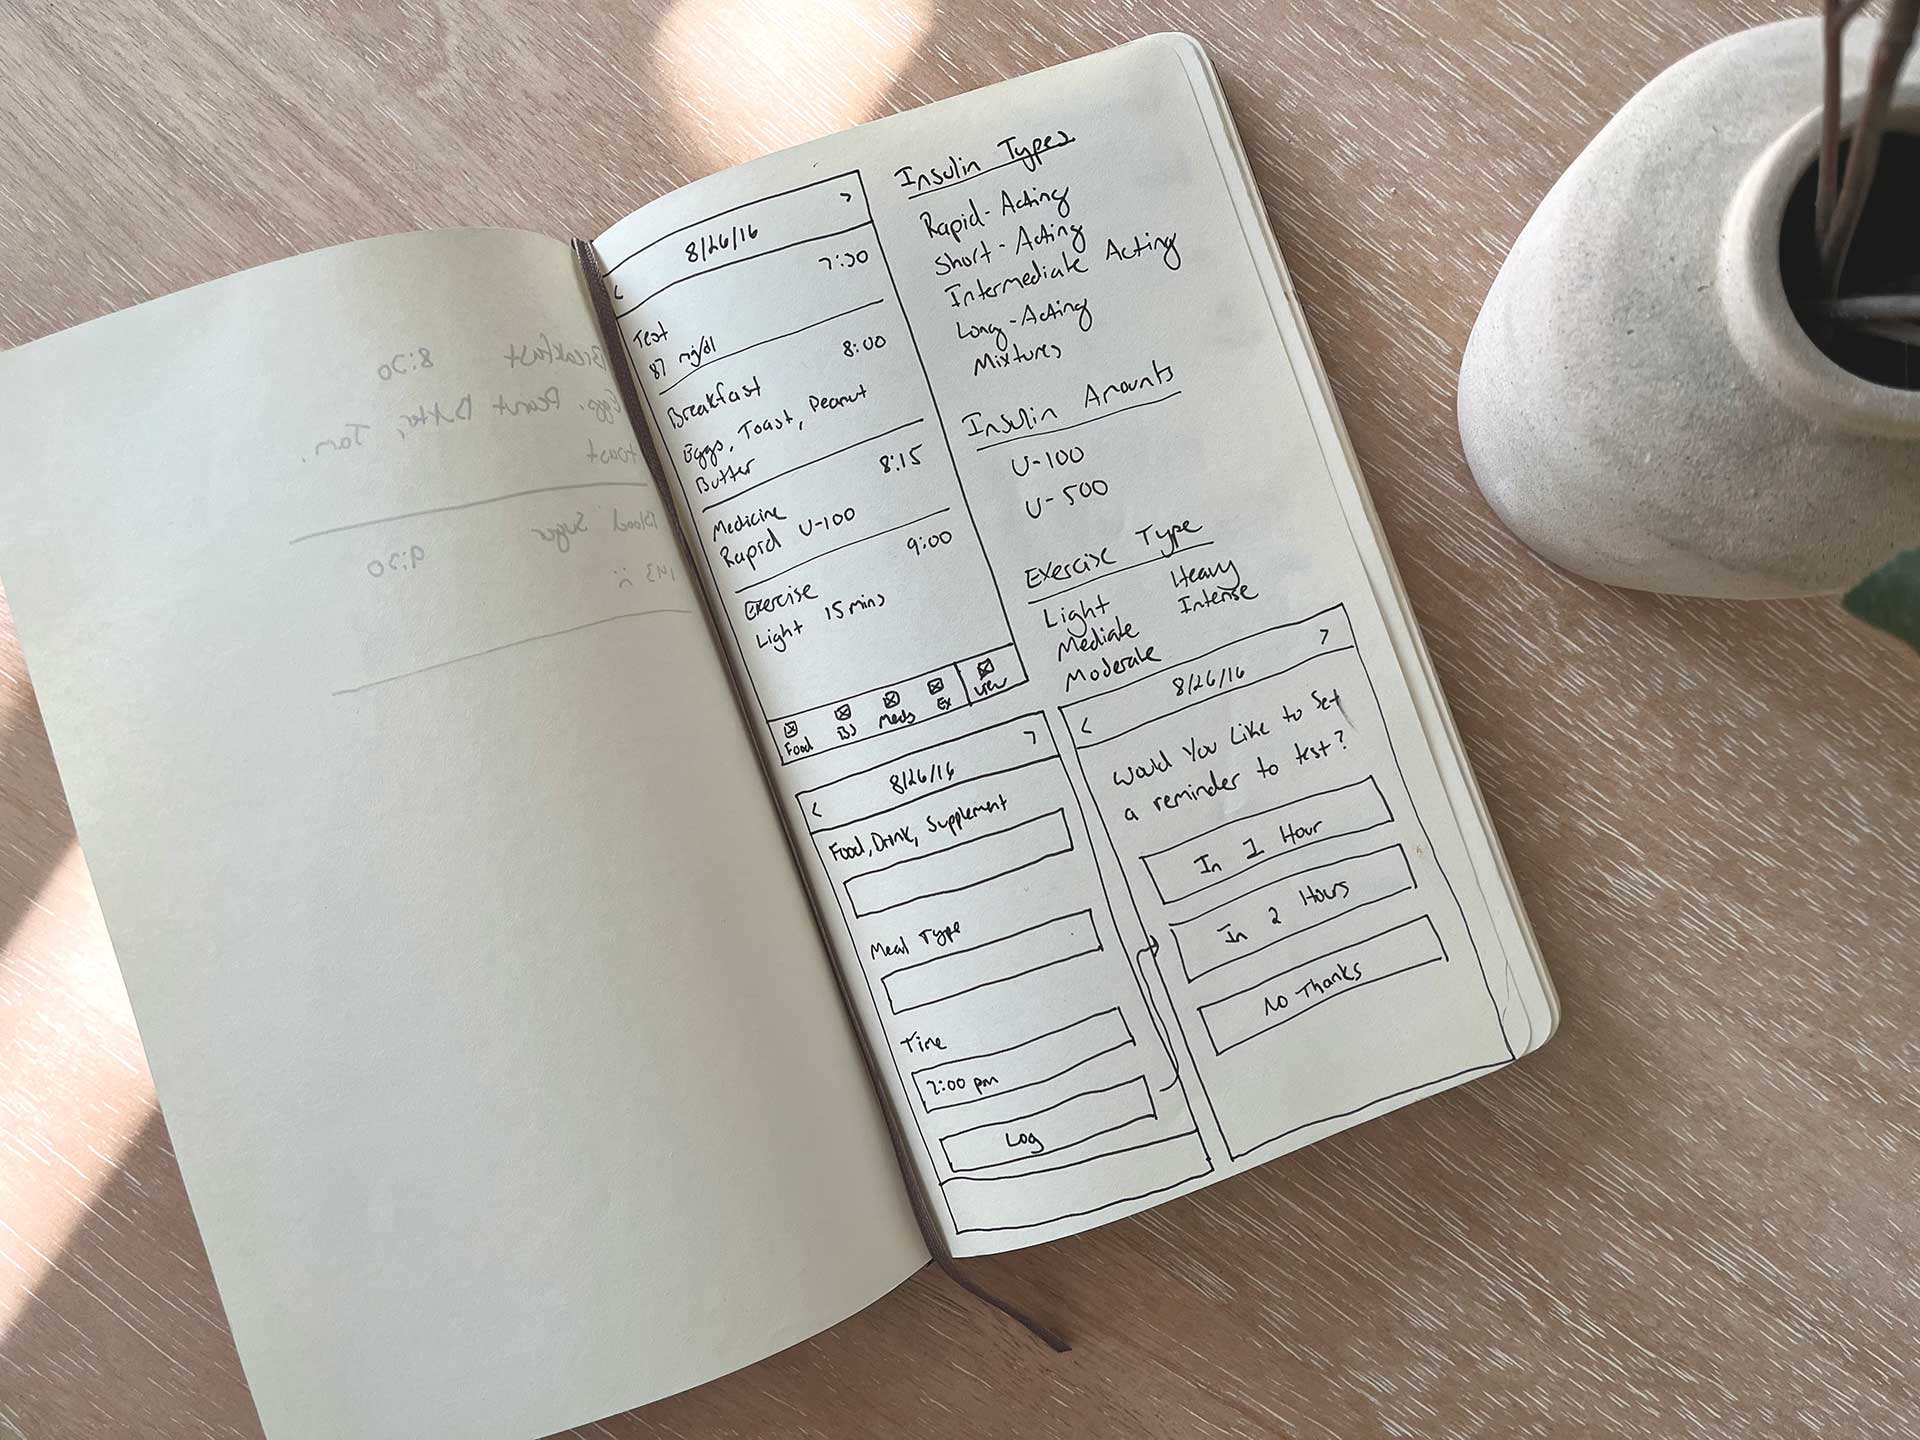 8/26/16
>
<
7:30
Test
87 mg/dl
8:00
Breakfast
Eggs, Toast, Peanut
Butter
8:15
Medicine
Rapid U-100
9:00
Exercise
Light 15 mins
Food BS Meds Ex View
Insulin Types
Rapid-Acting
Short-Acting
Intermediate Acting
Long-Acting
Mixtures
Insulin Amounts
U-100
U-500
Exercise Type
Light Heavy
Mediate Intense
Moderate
< 8/26/16 >
Food, Drink, Supplement
Meal Type
Time
2:00 pm
Log
< 8/26/16 >
Would You Like to Set
a reminder to test?
In 1 Hour
In 2 Hours
No Thanks
Breakfast 8:30
Eggs, Peanut Butter, Jam,
toast
Blood Sugar
9:30
143 :(